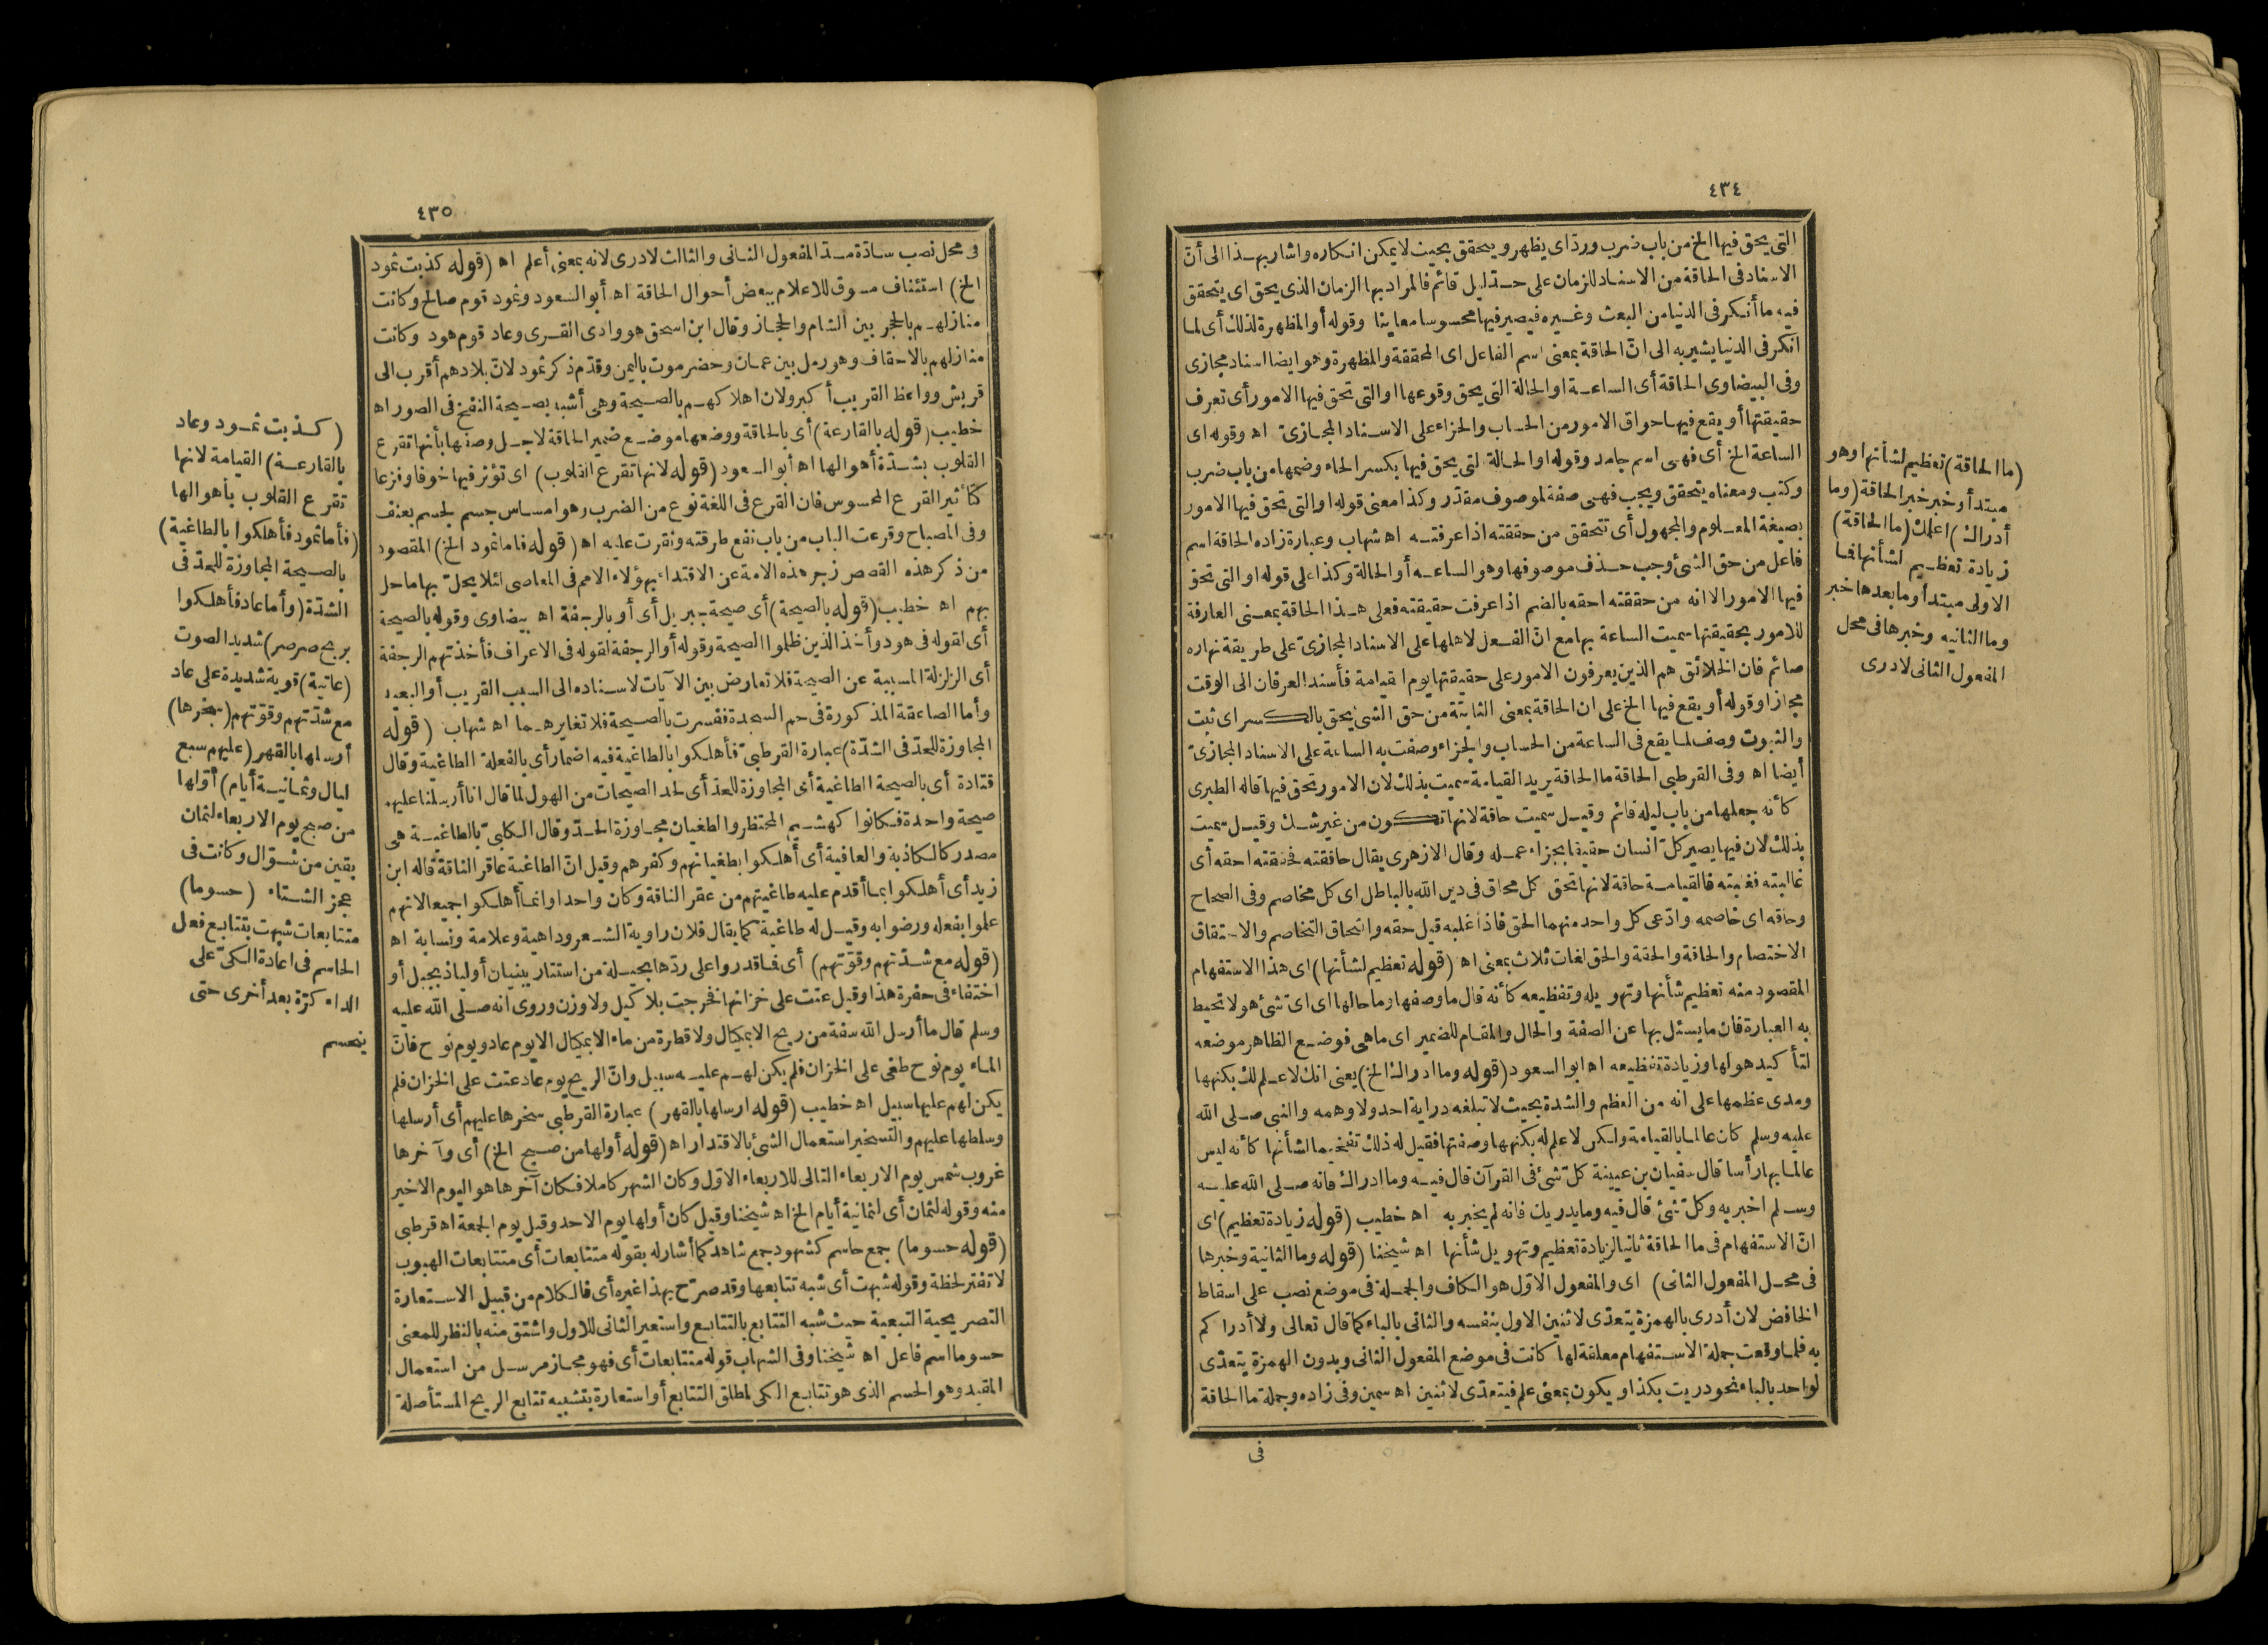 ٤٣٤
التى يحق فيها الخ من باب ضرب ورد اى يظهر ويتحقق بحيث لا يمكن انكاره واشار بهذا الى أنّ
الاسناد فى الحاقة من الاسناد للزمان على حد ليل قائم فالمراد بها الزمان الذى يحق اى يتحقق
فيه ما أنكر فى الدنيا من البعث وغيره فيصير فيها محسوسا معاينا وقوله أو المظهرة لذلك أى لما
انكر فى الدنيا يشير به الى انّ الحاقة بمعنى اسم الفاعل اى المحققة والمظهرة وهو ايضا اسناد مجازى
وفى البيضاوى الحاقة أى الساعة او الحالة التى يحق وقوعها او التى تحق فيها الامور أى تعرف
حقيقتها أو يقع فيها حواق الامور من الحساب والجزاء على الاسناد المجازىّ اه وقوله اى
الساعة الخ أى فهى اسم جامد وقوله او الحالة التى يحق فيها بكسر الحاء وضمها من باب ضرب
وكتب ومعناه يتحقق ويجب فهى صفة لموصوف مقدّر وكذا معنى قوله او التى تحق فيها الامور
بصيغة المعلوم والمجهول أى تتحقق من حققته اذا عرفته اه شهاب وعبارة زاده الحاقة اسم
فاعل من حق الشئ وجب حذف موصوفها وهو الساعة أو الحالة وكذا على قوله او التى تحق
فيها الامور الا انه من حققته احقه بالضم اذا عرفت حقيقته فعلى هذا الحاقة بمعنى العارفة
للامور بحقيقتها سميت الساعة بها مع انّ الفعل لاهلها على الاسناد المجازىّ على طريقة نهاره
صائم فان الخلائق هم الذين يعرفون الامور على حقيقتها يوم القيامة فأسند العرفان الى الوقت
مجازا وقوله أو يقع فيها الخ على ان الحاقة بمعنى الثابتة من حق الشئ يحق بالكسر اى ثبت
والثبوت وصف لما يقع فى الساعة من الحساب والجزاء وصفت به الساعة على الاسناد المجازىّ
أيضا اه وفى القرطبى الحاقة ما الحاقة يريد القيامة سميت بذلك لان الامور تحق فيها قاله الطبرى
كأنه جعلها من باب ليله قائم وقيل سميت حاقة لانها تكون من غير شك وقيل سميت
بذلك لان فيها يصير كلّ انسان حقيقا بجزاء عمله وقال الازهرى يقال حاققته فحققته احقه أى
غالبته فغلبته فالقيامة حاقة لانها تحق كل محاق فى دين الله بالباطل اى كل مخاصم وفى الصحاح
وحاقه اى خاصمه وادّعى كل واحد منهما الحق فاذا غلبه قيل حقه والتحاق التخاصم والاحتقاق
الاختصام والحاقة والحقة والحق لغات ثلاث بمعنى اه (قوله تعظيم لشأنها) اى هذا الاستفهام
المقصود منه تعظيم شأنها وتهويله وتفظيعه كأنه قال ما وصفها وما حالها اى اى شئ هو لا تحيط
به العبارة فان ما يسئل بها عن الصفة والحال والمقام للضمير اى ما هى فوضع الظاهر موضعه
لتأكيد هولها وزيادة تفظيعه اه ابو السعود (قوله وما ادراك الخ) يعنى انك لا علم لك بكنهها
ومدى عظمها على انه من العظم والشدة بحيث لا تبلغه دراية احد ولا وهمه والنبى صلى الله
عليه وسلم كان عالما بالقيامة ولكن لا علم له بكنهها وصفتها فقيل له ذلك تفخيما لشأنها كأنه ليس
عالما بها رأسا قال سفيان بن عيينة كلّ شئ فى القرآن قال فيه وما ادراك فانه صلى الله عليه
وسلم اخبر به وكلّ شئ قال فيه وما يدريك فانه لم يخبر به اه خطيب (قوله زيادة تعظيم) اى
انّ الاستفهام فى ما الحاقة ثانيا لزيادة تعظيم وتهويل شأنها اه شيخنا (قوله وما الثانية وخبرها
فى محل المفعول الثانى) اى والمفعول الاوّل هو الكاف والجملة فى موضع نصب على اسقاط
الخافض لان أدرى بالهمزة يتعدّى لاثنين الاول بنفسه والثانى بالباء كما قال تعالى ولا أدراكم
به فلما وقعت جملة الاستفهام معلقة لها كانت فى موضع المفعول الثانى وبدون الهمزة يتعدّى
لواحد بالباء نحو دريت بكذا ويكون بمعنى علم فيتعدّى لاثنين اه سمين وفى زاده وجملة ما الحاقة
فى
(ما الحاقة) تعظيم لشأنها وهو
مبتدأ وخبر خبر الحاقة (وما
أدراك) اعلمك (ما الحاقة)
زيادة تعظيم لشأنها فما
الاولى مبتدأ وما بعدها خبر
وما الثانيه وخبرها فى محل
المفعول الثانى لادرى
٤٣٥
فى محل نصب سادّة مسدّ المفعول الثانى والثالث لادرى لانه بمعنى أعلم اه (قوله كذبت ثمود
الخ) استئناف مسوق للاعلام ببعض أحوال الحاقة اه أبو السعود وثمود قوم صالح وكانت
منازلهم بالحجر بين الشام والحجاز وقال ابن اسحق هو وادى القرى وعاد قوم هود وكانت
منازلهم بالاحقاف وهو رمل بين عمان وحضرموت باليمن وقدّم ذكر ثمود لانّ بلادهم أقرب الى
قريش وواعظ القريب أكبر ولان اهلاكهم بالصيحة وهى أشبه بصيحة النفخ فى الصور اه
خطيب (قوله بالقارعة) أى بالحاقة ووضعها موضع ضمير الحاقة لاجل وصفها بأنها تقرع
القلوب بشدّة أهوالها اه أبو السعود (قوله لانها تقرع القلوب) اى تؤثر فيها خوفا وفزعا
كتأثير القرع المحسوس فان القرع فى اللغة نوع من الضرب وهو امساس جسم لجسم بعنف
وفى المصباح وقرعت الباب من باب نفع طرقته ونقرت عليه اه (قوله فاما ثمود الخ) المقصود
من ذكر هذه القصص زجر هذه الامة عن الاقتداء بهؤلاء الامم فى المعاصى لئلا يحلّ بها ما حل
بهم اه خطيب (قوله بالصيحة) أى صيحة جبريل أى أو بالرجفة اه بيضاوى وقوله بالصيحة
أى لقوله فى هود وأخذ الذين ظلموا الصيحة وقوله أو الرجفة لقوله فى الاعراف فأخذتهم الرجفة
أى الزلزلة المسببة عن الصيحة فلا تعارض بين الآيات لاسناده الى السبب القريب أو البعيد
وأما الصاعقة المذكورة فى حم السجدة ففسرت بالصيحة فلا تغاير هما اه شهاب (قوله
المجاوزة للحدّ فى الشدّة) عبارة القرطبىّ فأهلكوا بالطاغية فيه اضمار أى بالفعلة الطاغية وقال
قتادة أى بالصيحة الطاغية أى المجاوزة للحدّ أى لحد الصيحات من الهول لما قال انا أرسلنا عليهم
صيحة واحدة فكانوا كهشيم المحتظر والطغيان مجاوزة الحدّ وقال الكلبىّ بالطاغية هى
مصدر كالكاذبة والعافية أى أهلكوا بطغيانهم وكفرهم وقيل انّ الطاغية عاقر الناقة قاله ابن
زيد أى أهلكوا بما أقدم عليه طاغيتهم من عقر الناقة وكان واحدا وانما أهلكوا جميعا لانهم
علموا بفعله ورضوا به وقيل له طاغية كما يقال فلان راوية الشعر وداهية وعلامة ونسابة اه
(قوله مع شدّتهم وقوّتهم) أى فما قدروا على ردّها بحيلة من استتار ببنيان أو لياذ بجبل أو
اختفاء فى حفرة هذا وقيل عتت على خزانها فخرجت بلا كيل ولا وزن وروى انه صلى الله عليه
وسلم قال ما أرسل الله سفة من ريح الا بمكيال ولا قطرة من ماء الا بمكيال الا يوم عاد ويوم نوح فانّ
الماء يوم نوح طغى على الخزان فلم يكن لهم عليه سبيل وانّ الريح يوم عاد عتت على الخزان فلم
يكن لهم عليها سبيل اه خطيب (قوله ارسلها بالقهر) عبارة القرطبى سخرها عليهم أى أرسلها
وسلطها عليهم والتسخير استعمال الشئ بالاقتدار اه (قوله أولها من صبح الخ) أى وآخرها
غروب شمس يوم الاربعاء التالى للاربعاء الاوّل وكان الشهر كاملا فكان آخرها هو اليوم الاخير
منه وقوله لثمان أى لثمانية أيام الخ اه شيخنا وقيل كان أولها يوم الاحد وقيل يوم الجمعة اه قرطبى
(قوله حسوما) جمع حاسم كشهود جمع شاهد كما أشار له بقوله متتابعات أى متتابعات الهبوب
لا تفتر لحظة وقوله شبهت أى شبه تتابعها وقد صرّح بهذا غيره أى فالكلام من قبيل الاستعارة
التصريحية التبعية حيث شبه التتابع بالتتابع واستعير الثانى للاول واشتق منه بالنظر للمعنى
حسوما اسم فاعل اه شيخنا وفى الشهاب قوله متتابعات أى فهو مجاز مرسل من استعمال
المقيد وهو الحسم الذى هو تتابع الكى لمطلق التتابع أو استعارة بتشبيه تتابع الريح المستأصلة
(كذبت ثمود وعاد
بالقارعة) القيامة لانها
تقرع القلوب بأهوالها
(فأما ثمود فأهلكوا بالطاغية)
بالصيحة المجاوزة للحدّ فى
الشدّة (وأما عاد فأهلكوا
بريح صرصر) شديد الصوت
(عاتية) قوية شديدة على عاد
مع شدّتهم وقوّتهم (سخرها)
أرسلها بالقهر (عليهم سبع
ليال وثمانية أيام) أوّلها
من صبح يوم الاربعاء لثمان
بقين من شوّال وكانت فى
عجز الشتاء (حسوما)
متتابعات شبهت بتتابع فعل
الحاسم فى اعادة الكىّ على
الداء كرّة بعد أخرى حتى
ينحسم